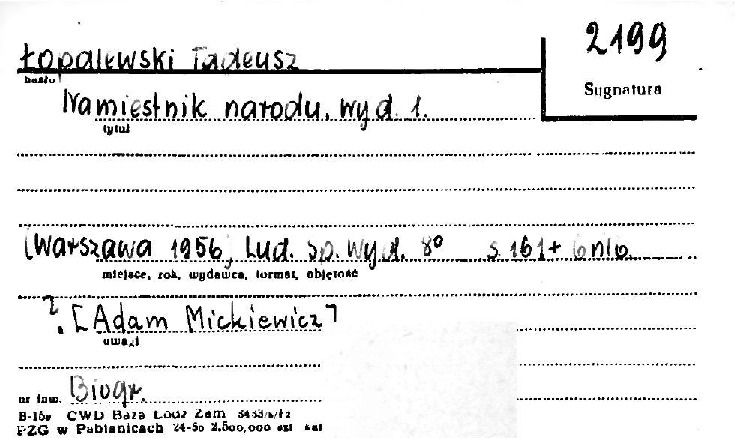 2199
Łopalewski Tadeusz
hasło
Sygnatura
Namiestnik narodu, wyd. 1.
tytuł
[Warszawa 1956, Lud. Sp. Wyd. 8° s. 161 + 6 nlb.
miejsce, rok, wydawca, format, objętość
[Adam Mickiewicz]
uwagi
nr inw. Biogr.
B-15 CWD Baza Łódź Zam
PZG w Pabianicach 24-50 2.500,000 szt